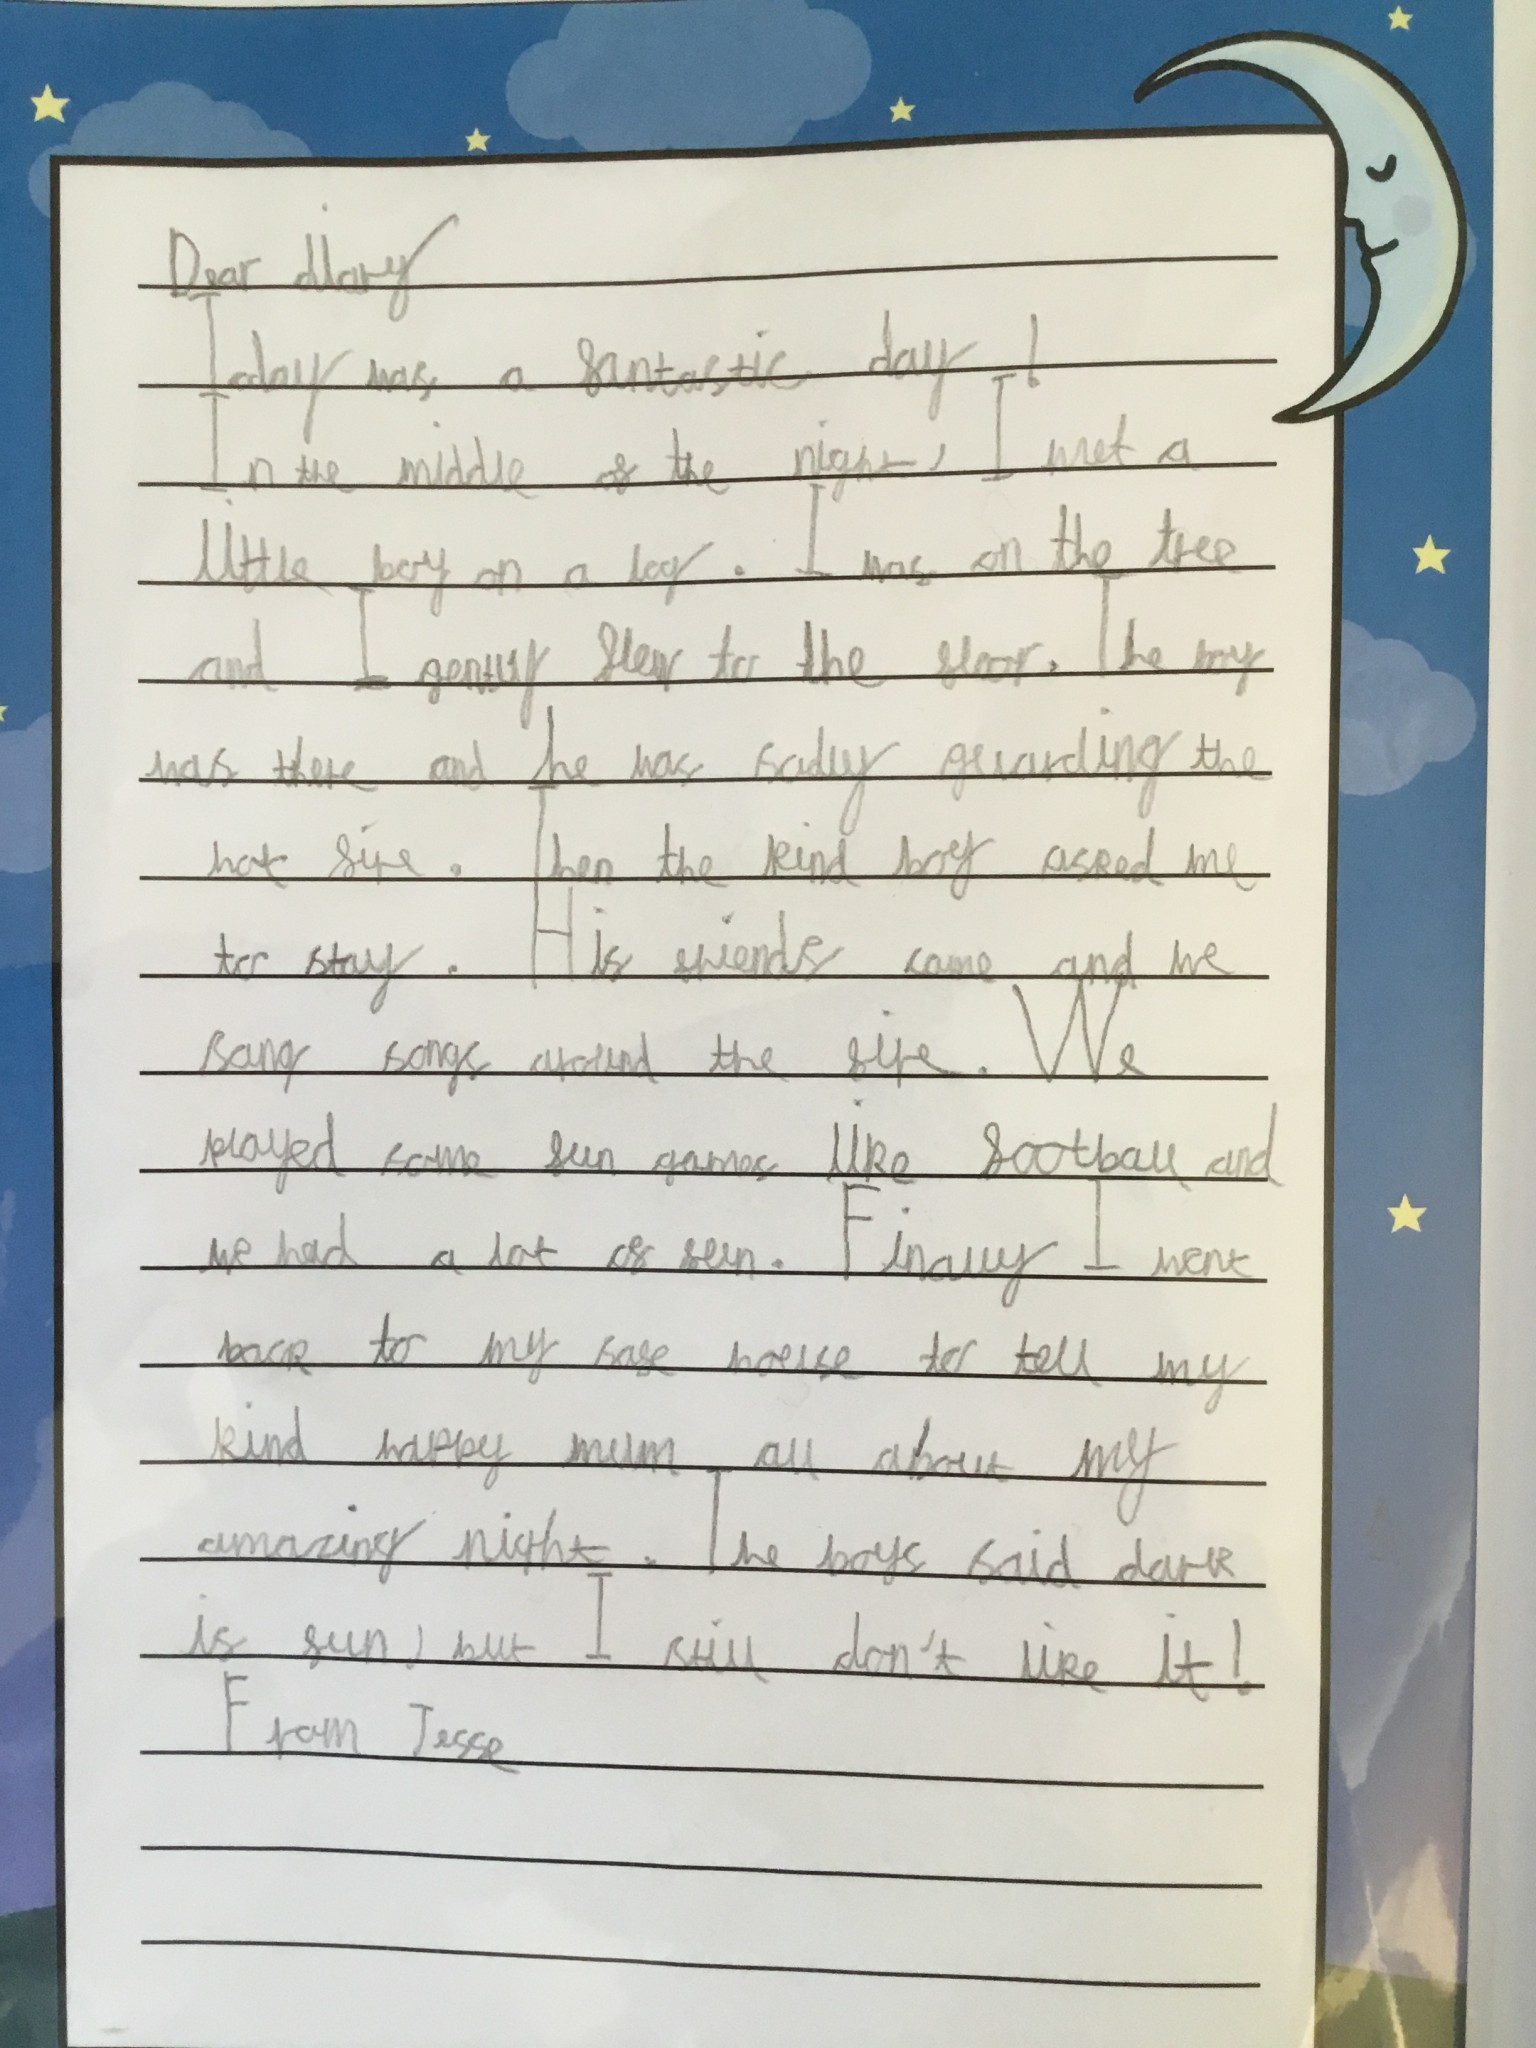 Dear diary
Today was a fantastic day !
In the middle of the night, I met a
little boy on a log. I was on the tree
and I gently flew to the floor. The boy
was there and he was sadly guarding the
hot fire. Then the kind boy asked me
to stay. His friends came and we
sang songs around the fire. We
played some fun games like football and
we had a lot of fun. Finally I went
back to my safe house to tell my
kind happy mum all about my
amazing night. The boys said dark
is fun, but I still don't like it!
From Jesse